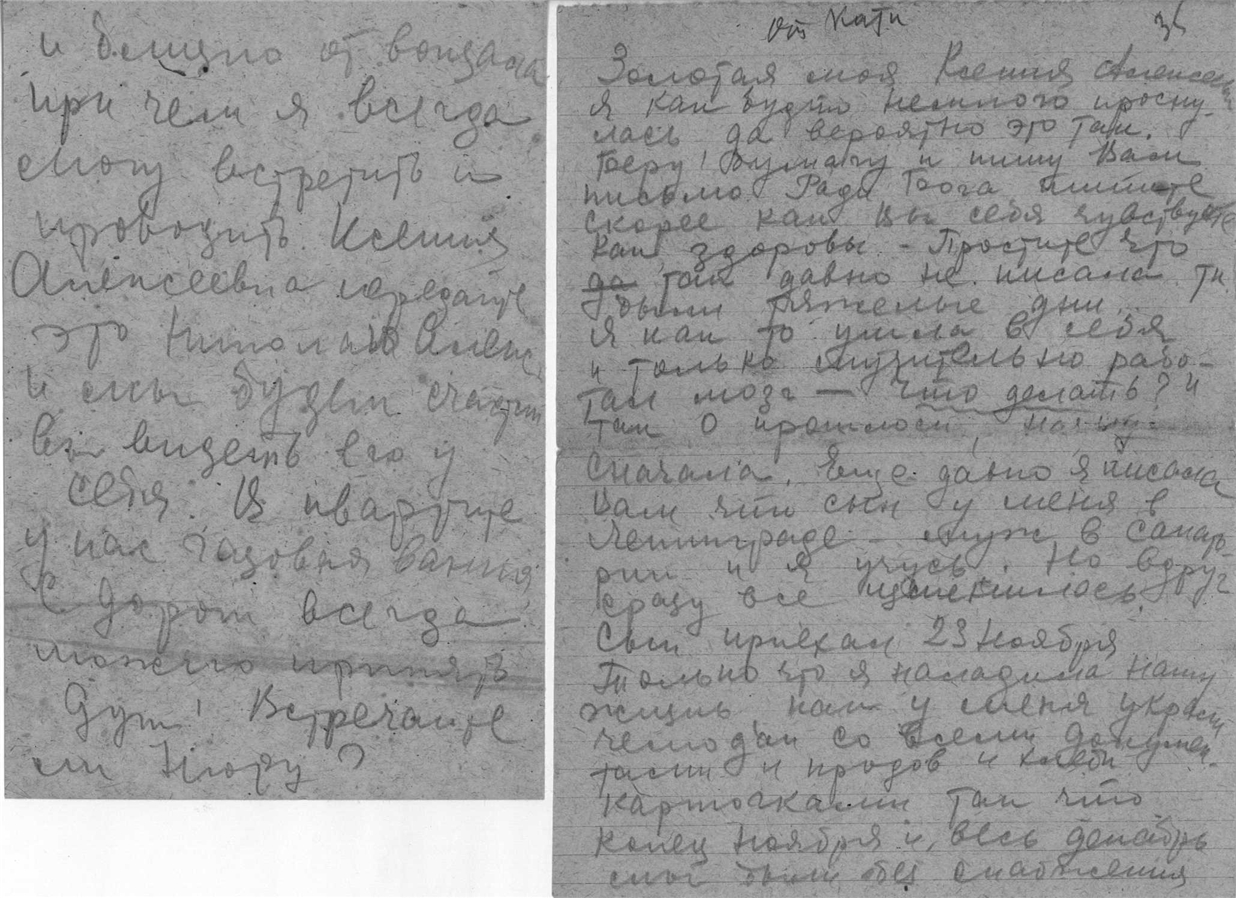 и близко от вокзала
при чем я всегда
смогу встретить и
проводить. Ксения
Алексеевна передайте
это Николаю Алекс.
и мы будем счастли
вы видеть его у
себя. В квартире
у нас газовая ванная
с дороги всегда
можно принять
Душ! Встречаете
ли Нюру?
от Кати
Золотая моя Ксения Алексеев
Я как будто немного просну-
лась да вероятно это так.
Беру бумагу и пишу Вам
письмо Ради Бога пишите
скорее как Вы себя чувствуете
как здоровы - Простите что
да так давно не писала тк.
были тяжелые дни
Я как то ушла в себя
и только мозг — что делать? и
так о прошлом,
Сначала. Еще давно я писала
Вам что сын у меня в
Ленинграде - муж в Санато-
рии и я учусь. Но вдруг
сразу все изменилось.
Сын приехал 23 ноября
Только что я наладила нашу
жизнь, как у меня украли
чемодан со всеми докумен-
тами и продов и хлебн
карточками так что
конец ноября и весь декабрь
мы были без снабжения